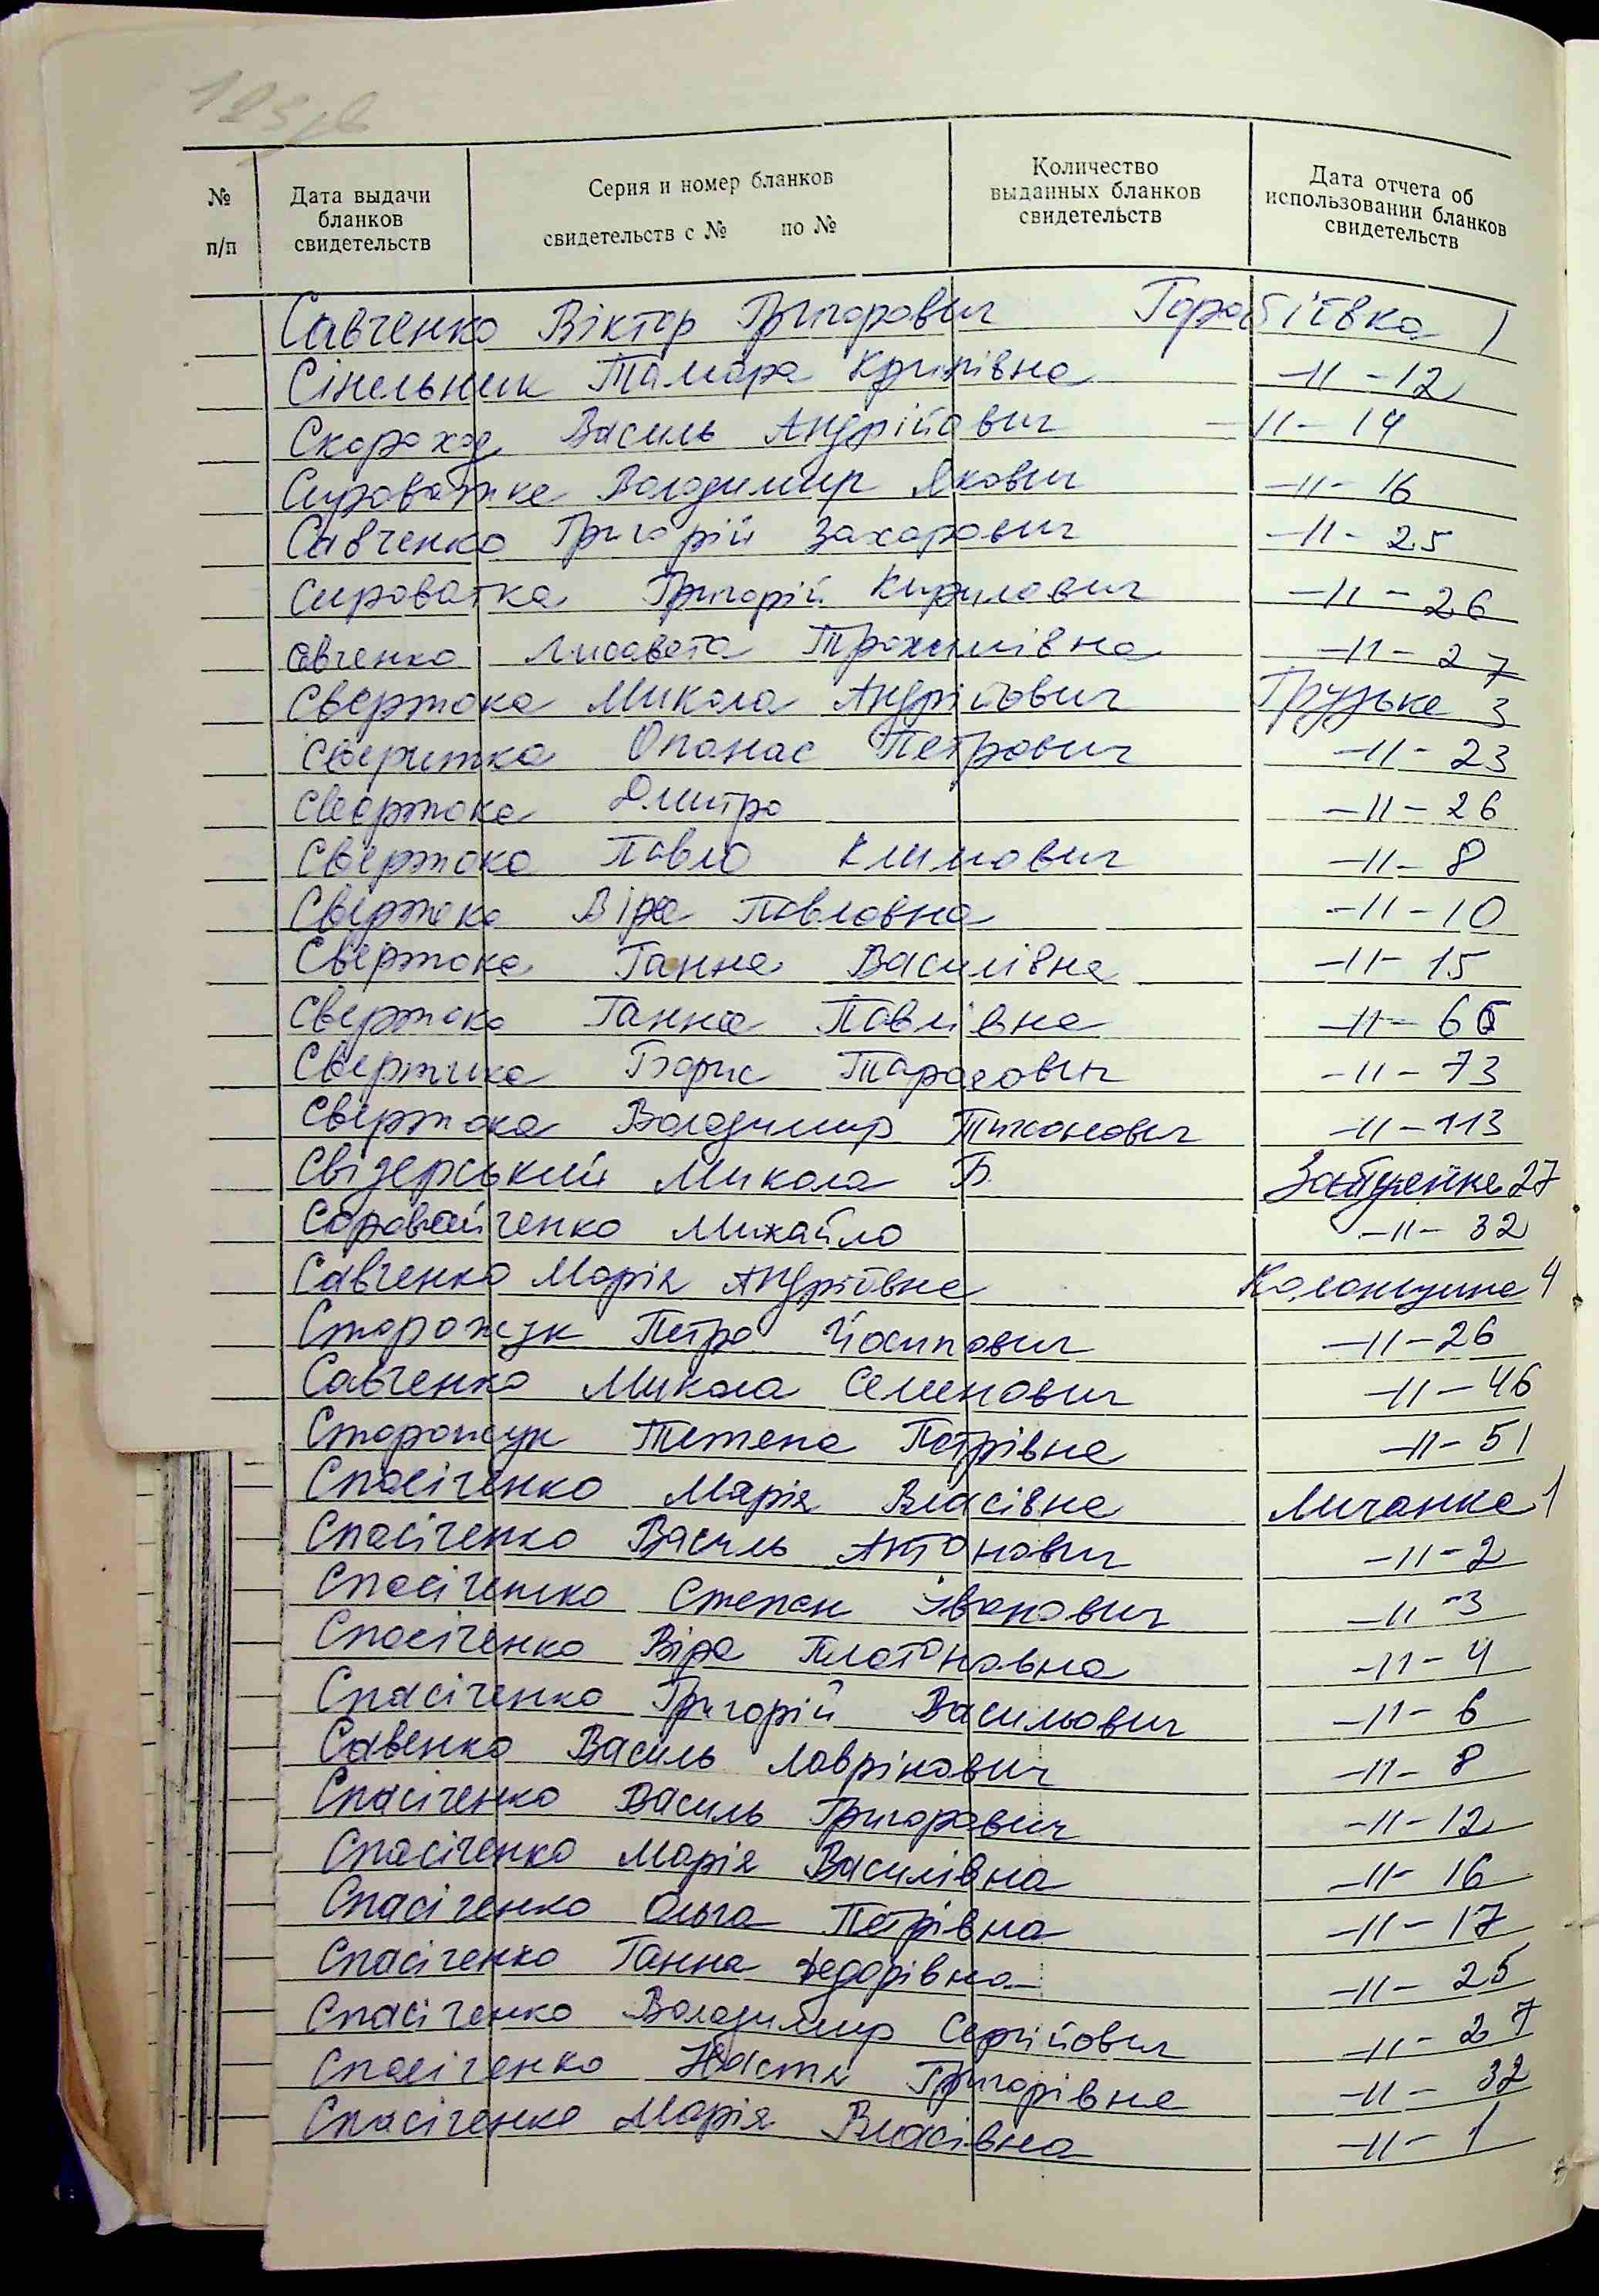 № п/п
Дата выдачи бланков свидетельств
Серия и номер бланков свидетельств с № по №
Количество выданных бланков свидетельств
Дата отчета об использовании бланков свидетельств
Савченко Віктор Григорович Горобіївка 1
Сінельник Тамара Крипівна -11-12
Скороход Василь Андрійович -11- 14
Сироватка Володимир Якович -11- 16
Савченко Григорій Захарович -11- 25
Сироватка Григорій Кирилович -11- 26
авченко Лисавета Трохимівна -11- 27
Свертока Микола Андрійович Грузьке 3
Сверитка Опанас Петрович -11- 23
Свертока Дмитро -11- 26
Свертока Павло Климович -11- 8
Свертока Віра Павловна -11-10
Свертока Ганна Василівна -11- 15
Свертока Ганна Павлівна -11- 66
Свертика Борис Тарасович -11- 73
Свертока Володимир Тихонович -11-113
Свідерський Микола Б 27
Михайло -11- 32
Савченко Марія Андріївна Колонщина 4
Сторожук Петро Йосипович -11-26
Савченко Микола Семенович -11-46
Сторожук Тетена Петрівна -11- 51
Спасіченко Марія Власівна Личанка 1
Спасіченко Василь Антонович -11-2
Спасіченко Степан Іванович -11-3
Спасіченко Віра Платоновна -11- 4
Спасіченко Григорій Васильович -11- 6
Савенко Василь Лаврінович -11- 8
Спасіченко Василь Григорович -11-12
Спасіченко Марія Василівна -11- 16
Спасіченко Ольга Петрівна -11- 17
Спасіченко Ганна Федорівна -11- 25
Спасіченко Володимир Сергійович -11- 27
Спасіченко Настя Григорівна -11- 32
Спасіченко Марія Власівна -11- 1